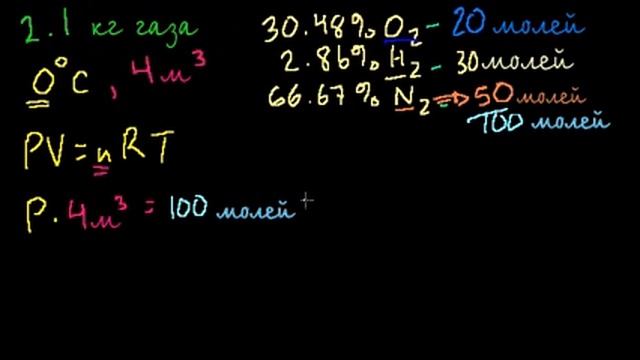 2.1 кг газа
0°C, 4м³
PV=nRT
P. 4м³ = 100 молей
30.48% O₂ - 20 молей
2.86% H₂ - 30 молей
66.67% N₂ => 50 молей
100 молей